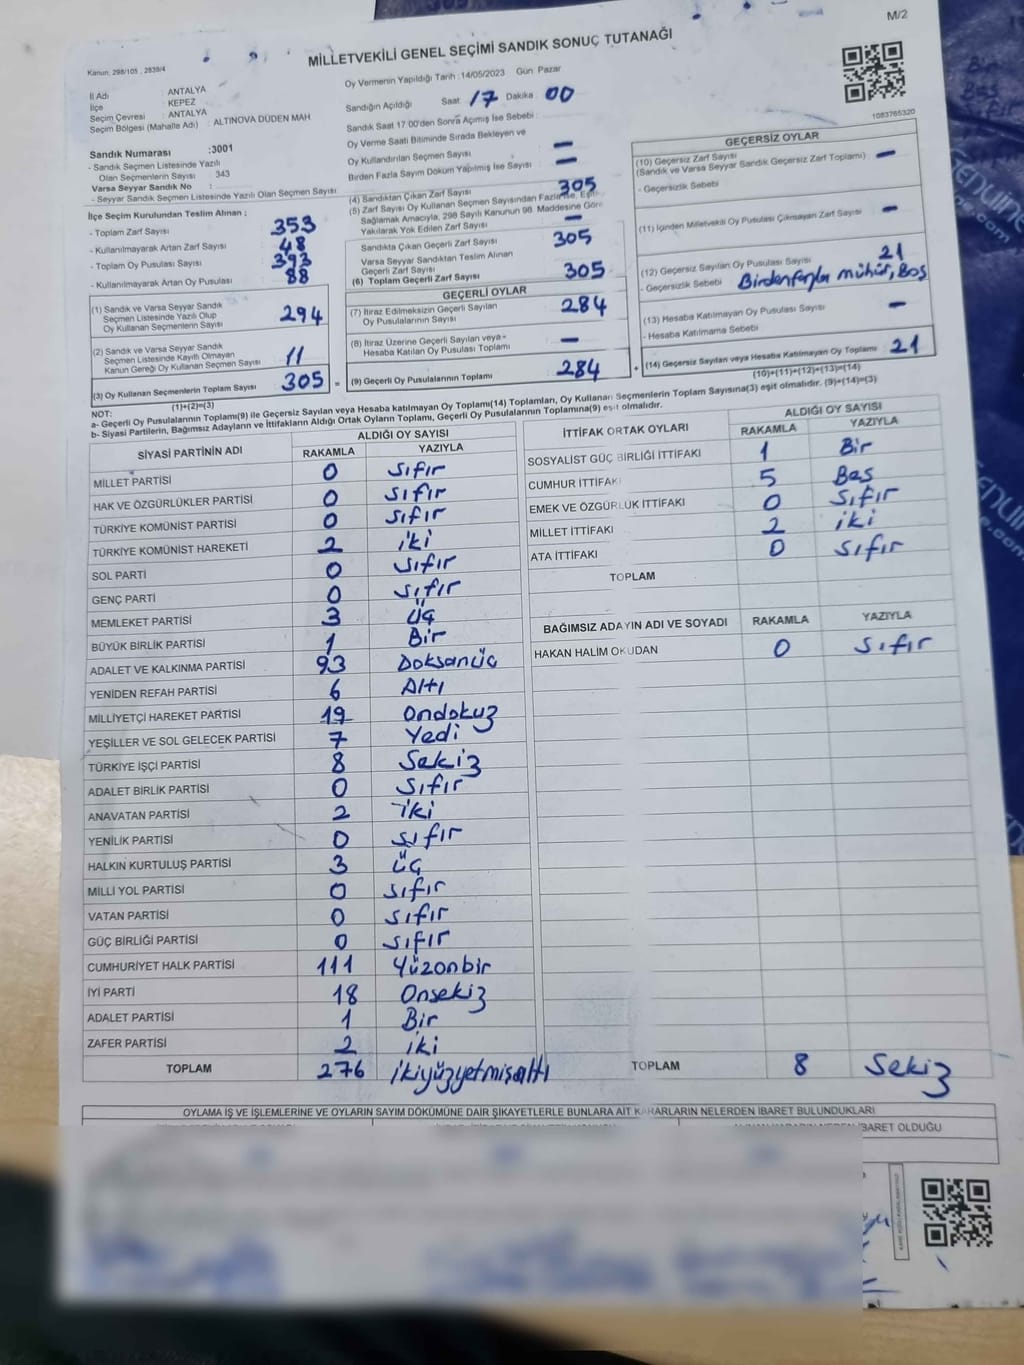 M/2
MİLLETVEKİLİ GENEL SEÇİMİ SANDIK SONUÇ TUTANAĞI
Kanun, 298/105 , 2839/4
Oy Vermenin Yapıldığı Tarih :14/05/2023 Gün: Pazar
İl Adı : ANTALYA
İlçe : KEPEZ
Seçim Çevresi : ANTALYA
Seçim Bölgesi (Mahalle Adı) : ALTINOVA DÜDEN MAH
Sandığın Açıldığı Saat 17 Dakika : 00
Sandık Saat 17.00'den Sonra Açımış İse Sebebi :
1083765320
Sandık Numarası :3001
- Sandık Seçmen Listesinde Yazılı
Olan Seçmenlerin Sayısı : 343
Varsa Seyyar Sandık No :
- Seyyar Sandık Seçmen Listesinde Yazılı Olan Seçmen Sayısı
Oy Verme Saati Bitiminde Sırada Bekleyen ve
Oy Kullandırılan Seçmen Sayısı —
Birden Fazla Sayım Döküm Yapılmış İse Sayısı —
İlçe Seçim Kurulundan Teslim Alınan ;
- Toplam Zarf Sayısı 353
- Kullanılmayarak Artan Zarf Sayısı 48
- Toplam Oy Pusulası Sayısı 393
- Kullanılmayarak Artan Oy Pusulası 88
(1) Sandık ve Varsa Seyyar Sandık
Seçmen Listesinde Yazılı Olup
Oy Kullanan Seçmenlerin Sayısı 294
(2) Sandık ve Varsa Seyyar Sandık
Seçmen Listesinde Kayıtlı Olmayan
Kanun Gereği Oy Kullanan Seçmen Sayısı 11
(3) Oy Kullanan Seçmenlerin Toplam Sayısı 305 =
(1)+(2)=(3)
(4) Sandıktan Çıkan Zarf Sayısı 305
(5) Zarf Sayısı Oy Kullanan Seçmen Sayısından Fazla İse, Eşit
Sağlamak Amacıyla, 298 Sayılı Kanunun 98. Maddesine Göre
Yakılarak Yok Edilen Zarf Sayısı —
Sandıkta Çıkan Geçerli Zarf Sayısı 305
Varsa Seyyar Sandıktan Teslim Alınan
Geçerli Zarf Sayısı
(6) Toplam Geçerli Zarf Sayısı 305
GEÇERLİ OYLAR
(7) İtiraz Edilmeksizin Geçerli Sayılan
Oy Pusulalarının Sayısı 284
(8) İtiraz Üzerine Geçerli Sayılan veya
Hesaba Katılan Oy Pusulası Toplamı —
(9) Geçerli Oy Pusulalarının Toplamı 284 +
GEÇERSİZ OYLAR
(10) Geçersiz Zarf Sayısı
(Sandık ve Varsa Seyyar Sandık Geçersiz Zarf Toplamı) —
- Geçersizlik Sebebi
(11) İçinden Milletvekili Oy Pusulası Çıkmayan Zarf Sayısı —
(12) Geçersiz Sayılan Oy Pusulası Sayısı 21
- Geçersizlik Sebebi Birdenfazla mühür, Boş
(13) Hesaba Katılmayan Oy Pusulası Sayısı —
- Hesaba Katılmama Sebebi
(14) Geçersiz Sayılan veya Hesaba Katılmayan Oy Toplamı 21
(10)+(11)+(12)+(13)=(14)
NOT:
a- Geçerli Oy Pusulalarının Toplamı(9) ile Geçersiz Sayılan veya Hesaba katılmayan Oy Toplamı(14) Toplamları, Oy Kullanan Seçmenlerin Toplam Sayısına(3) eşit olmalıdır. (9)+(14)=(3)
b- Siyasi Partilerin, Bağımsız Adayların ve İttifakların Aldığı Ortak Oyların Toplamı, Geçerli Oy Pusulalarının Toplamına(9) eşit olmalıdır.
SİYASİ PARTİNİN ADI ALDIĞI OY SAYISI
RAKAMLA YAZIYLA
MİLLET PARTİSİ 0 sıfır
HAK VE ÖZGÜRLÜKLER PARTİSİ 0 sıfır
TÜRKİYE KOMÜNİST PARTİSİ 0 sıfır
TÜRKİYE KOMÜNİST HAREKETİ 2 iki
SOL PARTİ 0 sıfır
GENÇ PARTİ 0 sıfır
MEMLEKET PARTİSİ 3 Üç
BÜYÜK BİRLİK PARTİSİ 1 Bir
ADALET VE KALKINMA PARTİSİ 93 Doksanüç
YENİDEN REFAH PARTİSİ 6 Altı
MİLLİYETÇİ HAREKET PARTİSİ 19 Ondokuz
YEŞİLLER VE SOL GELECEK PARTİSİ 7 Yedi
TÜRKİYE İŞÇİ PARTİSİ 8 Sekiz
ADALET BİRLİK PARTİSİ 0 sıfır
ANAVATAN PARTİSİ 2 iki
YENİLİK PARTİSİ 0 sıfır
HALKIN KURTULUŞ PARTİSİ 3 üç
MİLLİ YOL PARTİSİ 0 sıfır
VATAN PARTİSİ 0 sıfır
GÜÇ BİRLİĞİ PARTİSİ 0 sıfır
CUMHURİYET HALK PARTİSİ 111 Yüzonbir
İYİ PARTİ 18 Onsekiz
ADALET PARTİSİ 1 Bir
ZAFER PARTİSİ 2 iki
TOPLAM 276 ikiyüzyetmişaltı
İTTİFAK ORTAK OYLARI ALDIĞI OY SAYISI
RAKAMLA YAZIYLA
SOSYALİST GÜÇ BİRLİĞİ İTTİFAKI 1 Bir
CUMHUR İTTİFAKI 5 Beş
EMEK VE ÖZGÜRLÜK İTTİFAKI 0 sıfır
MİLLET İTTİFAKI 2 iki
ATA İTTİFAKI 0 sıfır
TOPLAM
BAĞIMSIZ ADAYIN ADI VE SOYADI RAKAMLA YAZIYLA
HAKAN HALİM OKUDAN 0 sıfır
TOPLAM 8 Sekiz
OYLAMA İŞ VE İŞLEMLERİNE VE OYLARIN SAYIM DÖKÜMÜNE DAİR ŞİKAYETLERLE BUNLARA AİT KARARLARIN NELERDEN İBARET BULUNDUKLARI
İBARET OLDUĞU